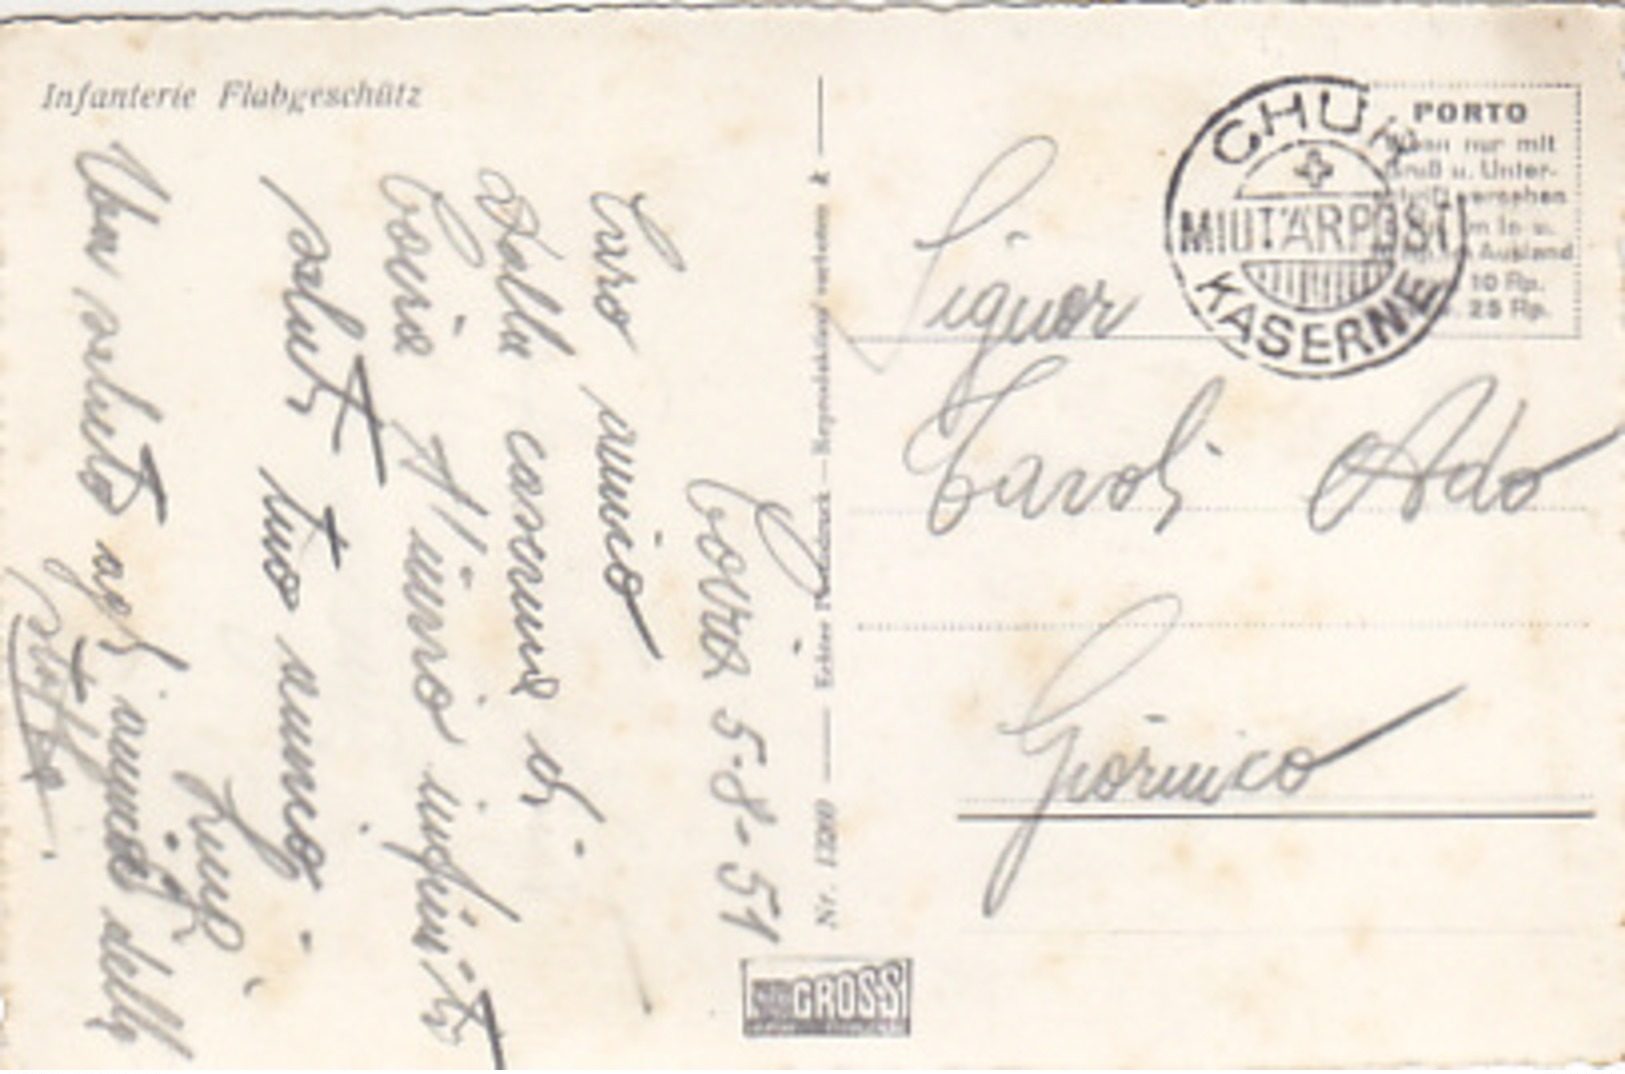 Infanterie Flabgeschütz
Coira 5-8-51
Caro amico
Dalla caserma di
Coira t'invio infiniti
saluti tuo amico
Luigi
Un saluto agli amici della
Nr. 13200 — Echter Photodruck — Reproduktion verboten
GROSS
CHUR
MILITÄRPOST
KASERNE
PORTO
wenn nur mit
Gruß u. Unter-
schrift versehen
im In- u.
Ausland
10 Rp.
25 Rp.
Signor
Taroli Ado
Giornico